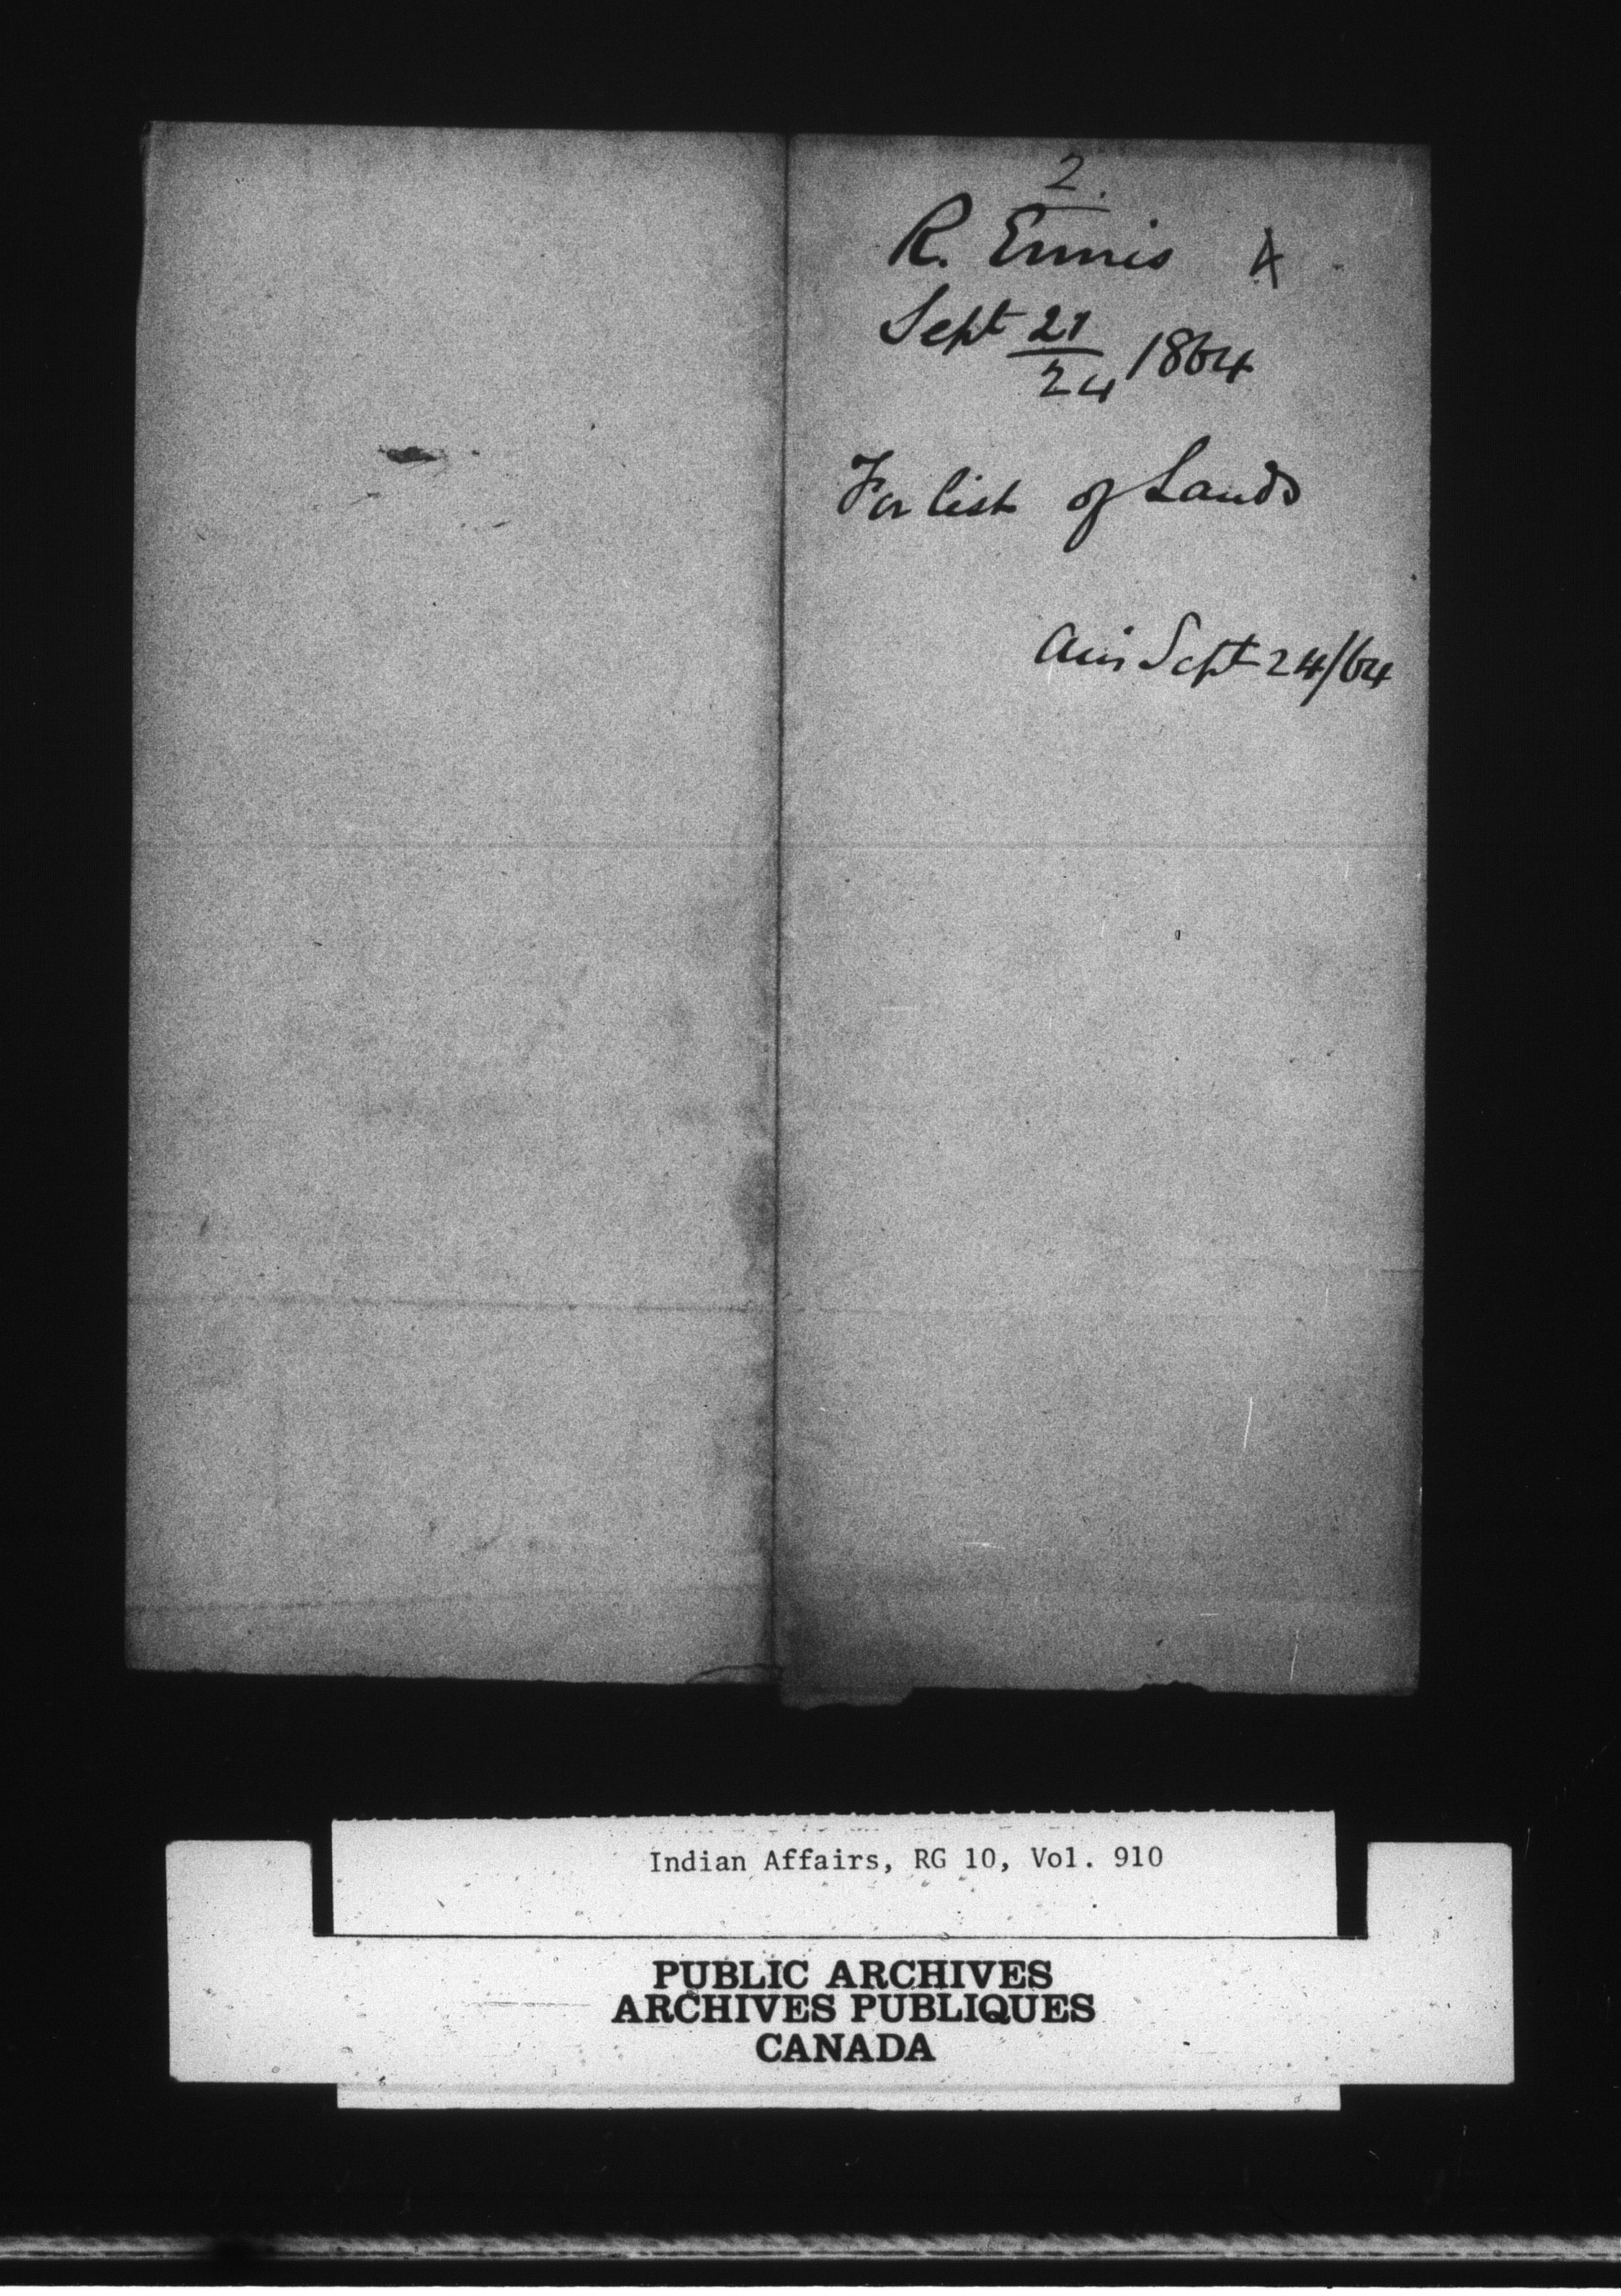 2.
R. Ennis
Sept 21/24 1864
For list of Lands
Sept 24/64
Indian Affairs, RG 10, Vol. 910
PUBLIC ARCHIVES
ARCHIVES PUBLIQUES
CANADA